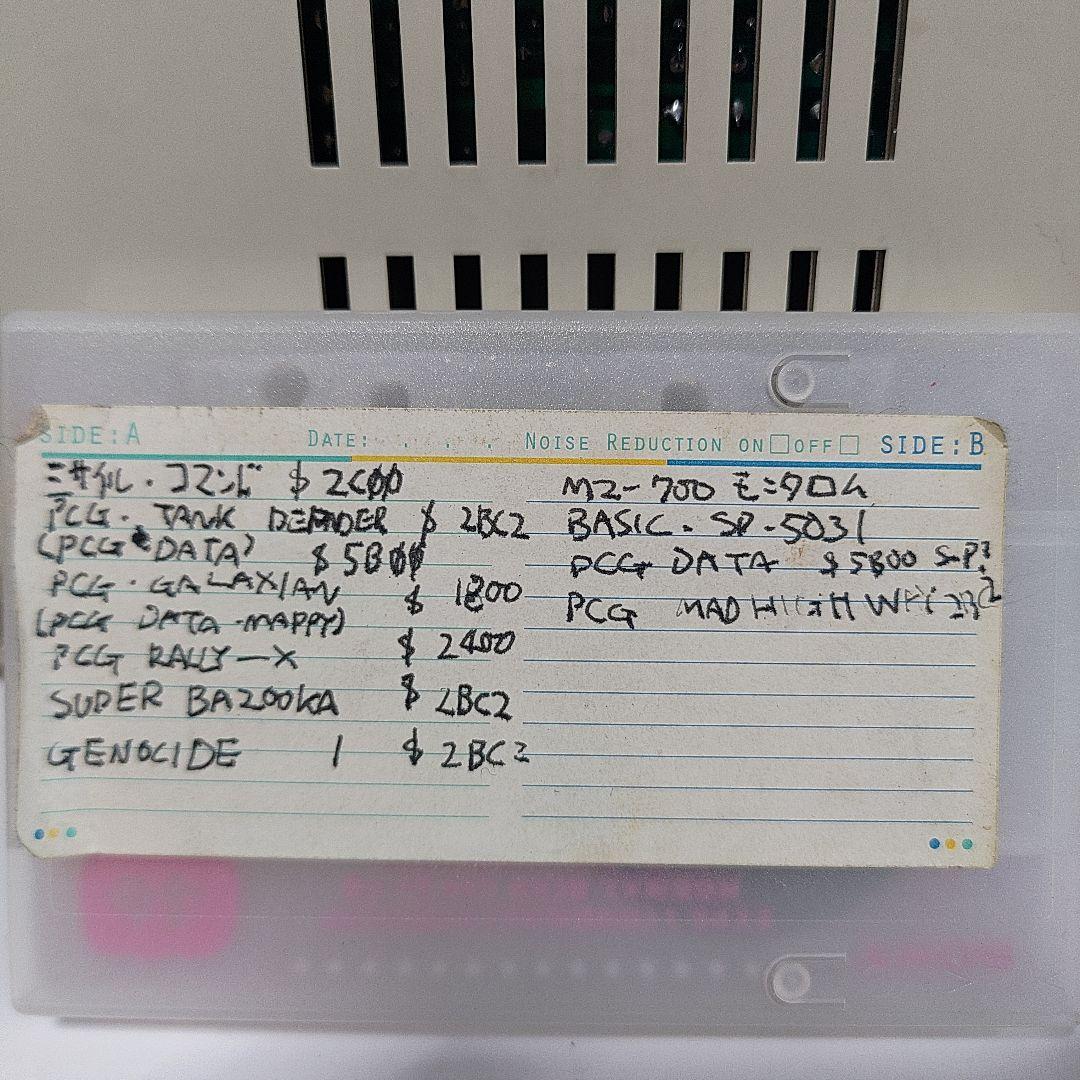 SIDE:A DATE: . . . NOISE REDUCTION ON□OFF□ SIDE:B
ミサイル・コマンド $2C00
PCG・TANK DEFENDER $2BC2
(PCG DATA) $5800
PCG・GALAXIAN $1800
(PCG DATA・MAPPY)
PCG RALLY-X $2400
SUPER BAZOOKA $2BC2
GENOCIDE 1 $2BC2
MZ-700 モニタロム
BASIC・SP-5031
PCG DATA $5800
PCG MAD HIGHWAY